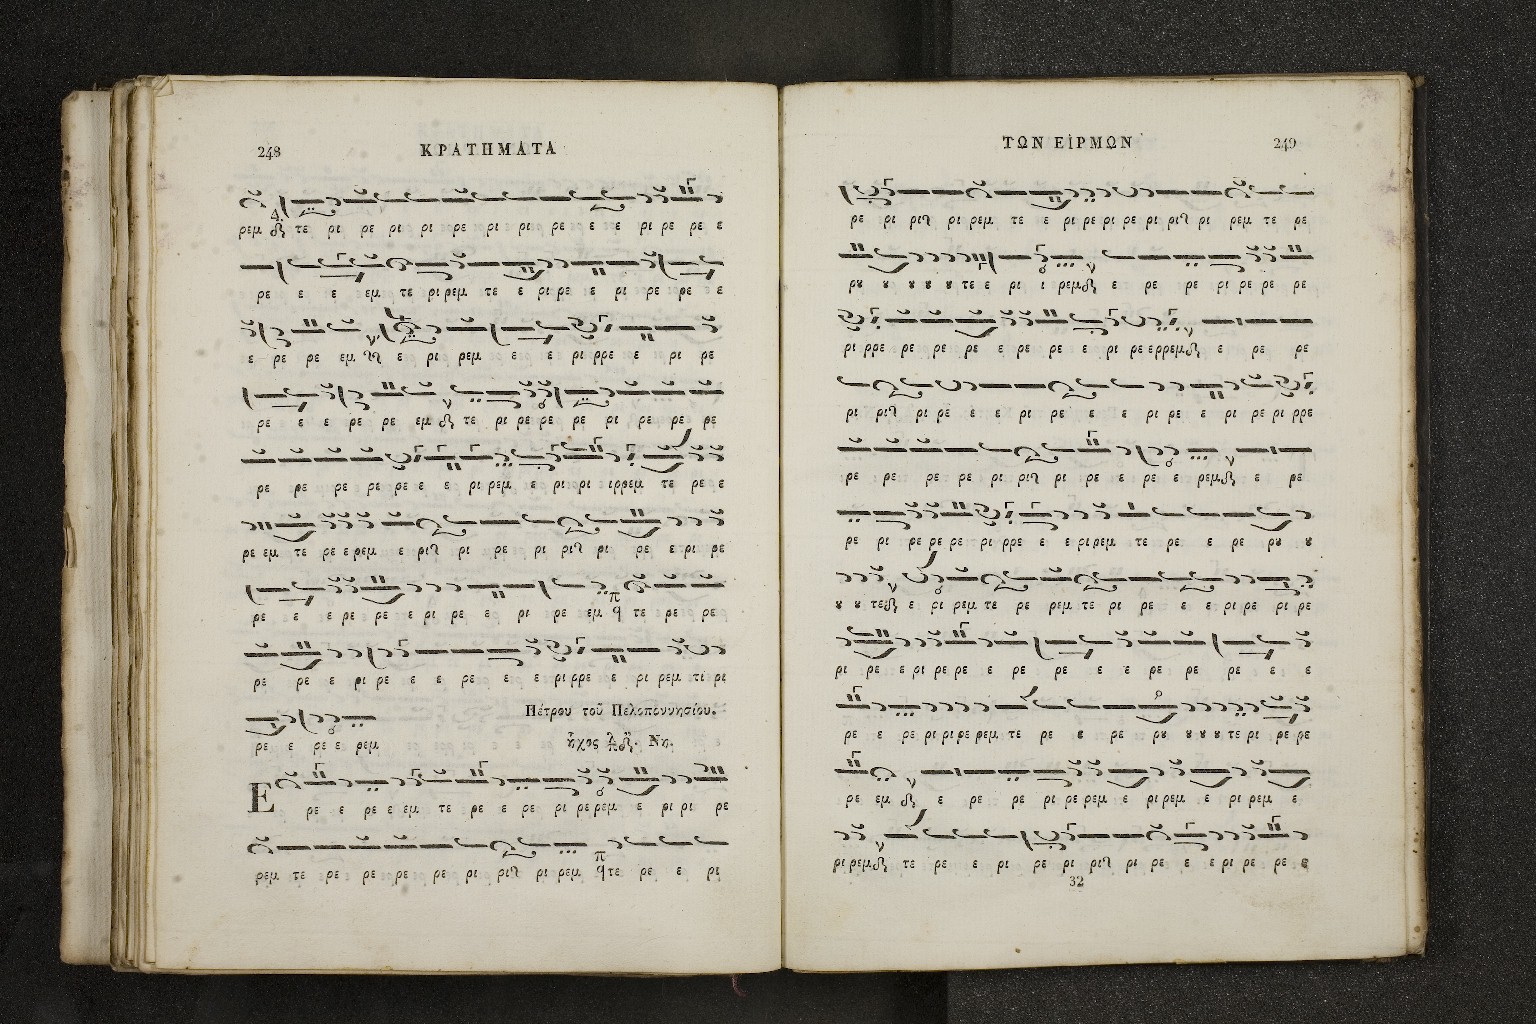 248 ΚΡΑΤΗΜΑΤΑ
ρεμ τε ρι ρε ρι ρι ρε ρι ρι ρε ε ε ρι ρε ρε ε
ρε ε ε εμ τε ρι ρεμ τε ε ρι ρε ε ρι ρε ρε ε
ε ρε ρε εμ ε ρι ρεμ ε ε ρι ρρε ε ρι ρε
ρε ε ε ρε ρε εμ τε ρι ρε ρε ρε ρι ρε ρε ρε
ρε ρε ρε ρε ρε ε ε ρι ρεμ ε ρι ρι ε ιρρεμ τε ρε ε
ρε εμ τε ρε ε ρεμ ε ρι ρι ρε ρι ρι ρι ρε ε ρι ρε
ρε ε ε ρε ρε ε ρι ρε ε ρι ρε εμ τε ρε ρε
ρε ρε ε ρι ρε ε ε ρε ε ε ρι ρρε ε ρι ρεμ τι ρι
Πέτρου τοῦ Πελοποννησίου.
ρε ε ρε ε ρεμ ἦχος Νη.
Ε ρε ε ρε ε εμ τε ρε ε ρε ρι ρε ρεμ ε ρι ρι ρε
ρεμ τε ρε ρε ρε ρε ρι ρι ρι ρεμ τε ρε ε ρι
ΤΩΝ ΕΙΡΜΩΝ 249
ρε ρι ρι ρι ρεμ τε ε ρι ρε ρι ρε ρι ρι ρι ρεμ τε ρε
ρυ υ υ υ υ τε ε ρι ι ρεμ ε ρε ρε ρι ρε ρε ρε
ρι ρρε ρε ρε ρε ε ρε ρε ε ρι ρε ερρεμ ε ρε ρε
ρι ρι ρι ρε ε ε ρι ρε ε ε ρι ρε ε ρι ρε ρι ρρε
ρε ρε ρε ρε ρι ρι ρι ρε ε ρε ε ρεμ ε ρε
ρε ρι ρε ρε ρε ρι ρρε ε ε ρι ρεμ τε ρε ε ρε ρυ υ
υ υ τε ε ρι ρεμ τε ρε ρεμ τε ρι ρε ε ε ρι ρε ρι ρε
ρι ρε ε ρι ρε ρε ε ρε ρε ε ε ρε ρε ρε ε ε
ρε ε ρε ρι ρι ρε ρεμ τε ρε υ ρε ρυ υ υ υ τε ρι ρε ρε
ρε εμ ε ρε ρε ρι ρε ρεμ ε ρι ρεμ ε ρι ρεμ ε
ρι ρεμ τε ρε ε ρι ρε ρι ρι ρι ρε ε ε ρι ρε ρε ε
32